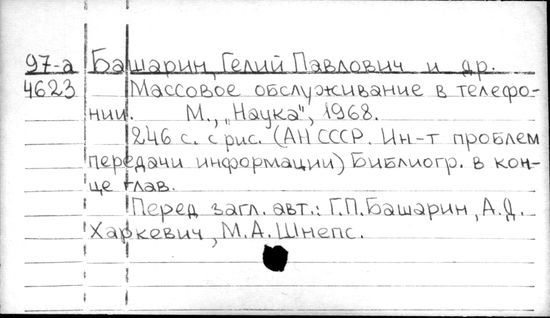 97-а Башарин, Гелий Павлович и др.
4623 Массовое обслуживание в телефо-
нии. М., „Наука", 1968.
246 с. с рис. (АН СССР. Ин-т проблем
передачи информации) Библиогр. в кон-
це глав.
Перед загл. авт.: Г.П.Башарин, А.Д.
Харкевич, М.А.Шнепс.